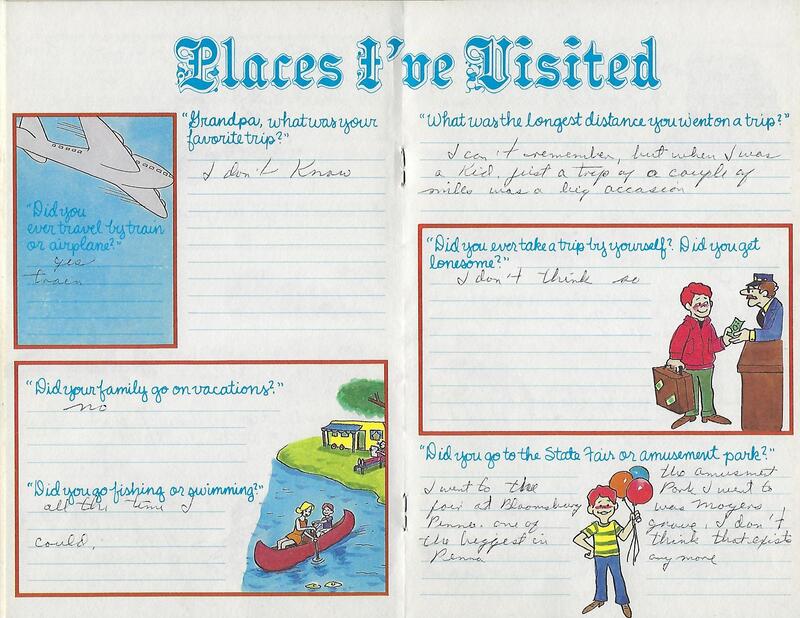 Places I've Visited
"Grandpa, what was your
favorite trip?"
I don't Know
"Did you
ever travel by train
or airplane?"
yes
train
"Did your family go on vacations?"
no
"Did you go fishing or swimming?"
all the time I
could.
"What was the longest distance you went on a trip?"
I can't remember, but when I was
a Kid, just a trip of a couple of
miles was a big occasion
"Did you ever take a trip by yourself? Did you get
lonesome?"
I don't think so
"Did you go to the State Fair or amusement park?"
I went to the
fair at Bloomsburg
Penna. one of
the biggest in
Penna
the amusmet
Park I went to
was Moyers
grove, I don't
think that exists
any more